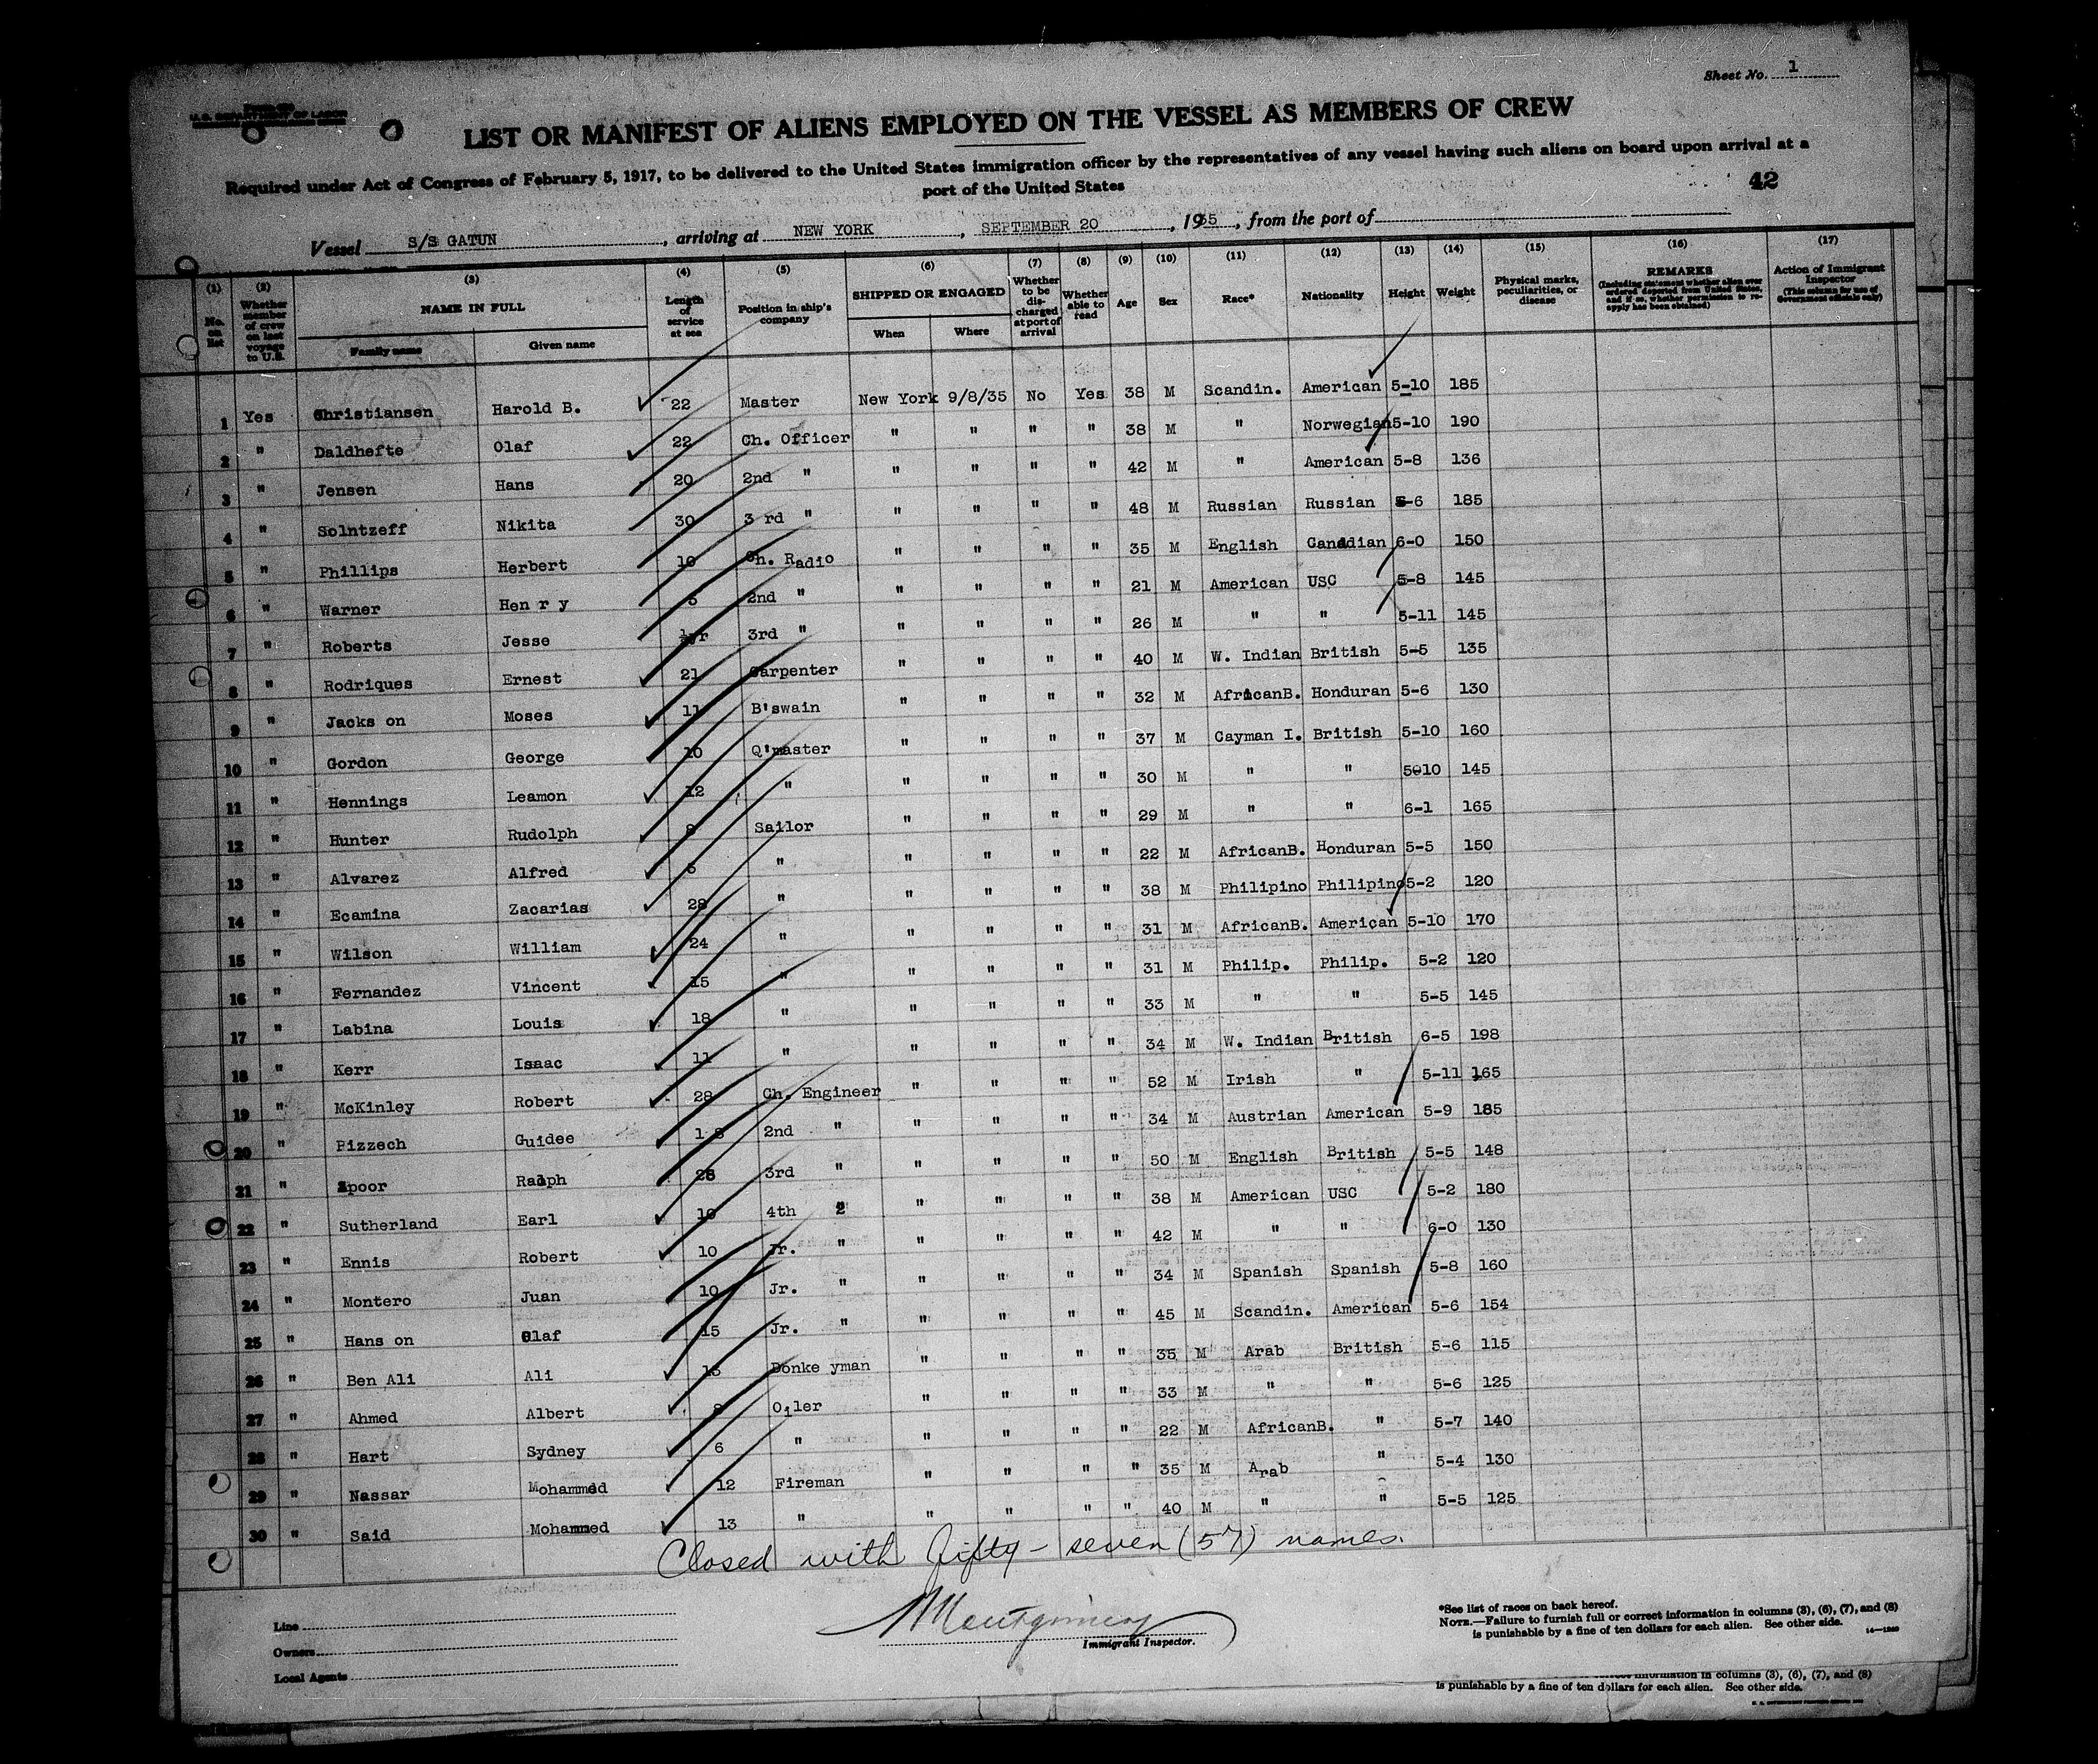 Sheet No. 1
U. S. DEPARTMENT OF LABOR
LIST OR MANIFEST OF ALIENS EMPLOYED ON THE VESSEL AS MEMBERS OF CREW
Required under Act of Congress of February 5, 1917, to be delivered to the United States immigration officer by the representatives of any vessel having such aliens on board upon arrival at a
port of the United States
42
Vessel S/S GATUN, arriving at NEW YORK, SEPTEMBER 20, 1935, from the port of
(1) (2) (3) (4) (5) (6) (7) (8) (9) (10) (11) (12) (13) (14) (15) (16) (17)
No. on list Whether member of crew on last voyage to U.S. NAME IN FULL Family name Given name Length of service at sea Position in ship's company SHIPPED OR ENGAGED When Where Whether to be discharged at port of arrival Whether able to read Age Sex Race* Nationality Height Weight Physical marks, peculiarities, or disease REMARKS (Including statement whether alien ever ordered deported from United States, and if so, whether permission to reapply has been obtained) Action of Immigrant Inspector (This column for use of Government officials only)
1 Yes Christiansen Harold B. 22 Master New York 9/8/35 No Yes 38 M Scandin. American 5-10 185
2 " Daldhefte Olaf 22 Ch. Officer " " " " 38 M " Norwegian 5-10 190
3 " Jensen Hans 20 2nd " " " " " 42 M " American 5-8 136
4 " Solntzeff Nikita 30 3 rd " " " " " 48 M Russian Russian 5-6 185
5 " Phillips Herbert 10 Ch. Radio " " " " 35 M English Canadian 6-0 150
6 " Warner Hen r y 5 2nd " " " " " 21 M American USC 5-8 145
7 " Roberts Jesse yr 3rd " " " " " 26 M " " 5-11 145
8 " Rodriques Ernest 21 Carpenter " " " " 40 M W. Indian British 5-5 135
9 " Jacks on Moses 11 B'swain " " " " 32 M AfricanB. Honduran 5-6 130
10 " Gordon George 10 Q'master " " " " 37 M Cayman I. British 5-10 160
11 " Hennings Leamon 12 " " " " " 30 M " " 5010 145
12 " Hunter Rudolph 8 Sailor " " " " 29 M " " 6-1 165
13 " Alvarez Alfred 5 " " " " " 22 M AfricanB. Honduran 5-5 150
14 " Ecamina Zacarias 28 " " " " " 38 M Philipino Philipino 5-2 120
15 " Wilson William 24 " " " " " 31 M AfricanB. American 5-10 170
16 " Fernandez Vincent 15 " " " " " 31 M Philip. Philip. 5-2 120
17 " Labina Louis 18 " " " " " 33 M " " 5-5 145
18 " Kerr Isaac 11 " " " " " 34 M W. Indian British 6-5 198
19 " McKinley Robert 28 Ch. Engineer " " " " 52 M Irish " 5-11 165
20 " Pizzech Guidee 1 8 2nd " " " " " 34 M Austrian American 5-9 185
21 " Spoor Ralph 28 3rd " " " " " 50 M English British 5-5 148
22 " Sutherland Earl 10 4th 2 " " " " 38 M American USC 5-2 180
23 " Ennis Robert 10 Jr. " " " " " 42 M " " 6-0 130
24 " Montero Juan 10 Jr. " " " " " 34 M Spanish Spanish 5-8 160
25 " Hans on Olaf 15 Jr. " " " " " 45 M Scandin. American 5-6 154
26 " Ben Ali Ali 15 Donke yman " " " " 35 M Arab British 5-6 115
27 " Ahmed Albert 8 Oiler " " " " 33 M " " 5-6 125
28 " Hart Sydney 6 " " " " " 22 M AfricanB. " 5-7 140
29 " Nassar Mohammed 12 Fireman " " " " 35 M Arab " 5-4 130
30 " Said Mohammed 13 " " " " " 40 M " " 5-5 125
Closed with Fifty-seven (57) names.
Line
Owners
Local Agents
Montgomery
Immigrant Inspector.
*See list of races on back hereof.
NOTE.—Failure to furnish full or correct information in columns (3), (6), (7), and (8)
is punishable by a fine of ten dollars for each alien. See other side.
information in columns (3), (6), (7), and (8)
is punishable by a fine of ten dollars for each alien. See other side.